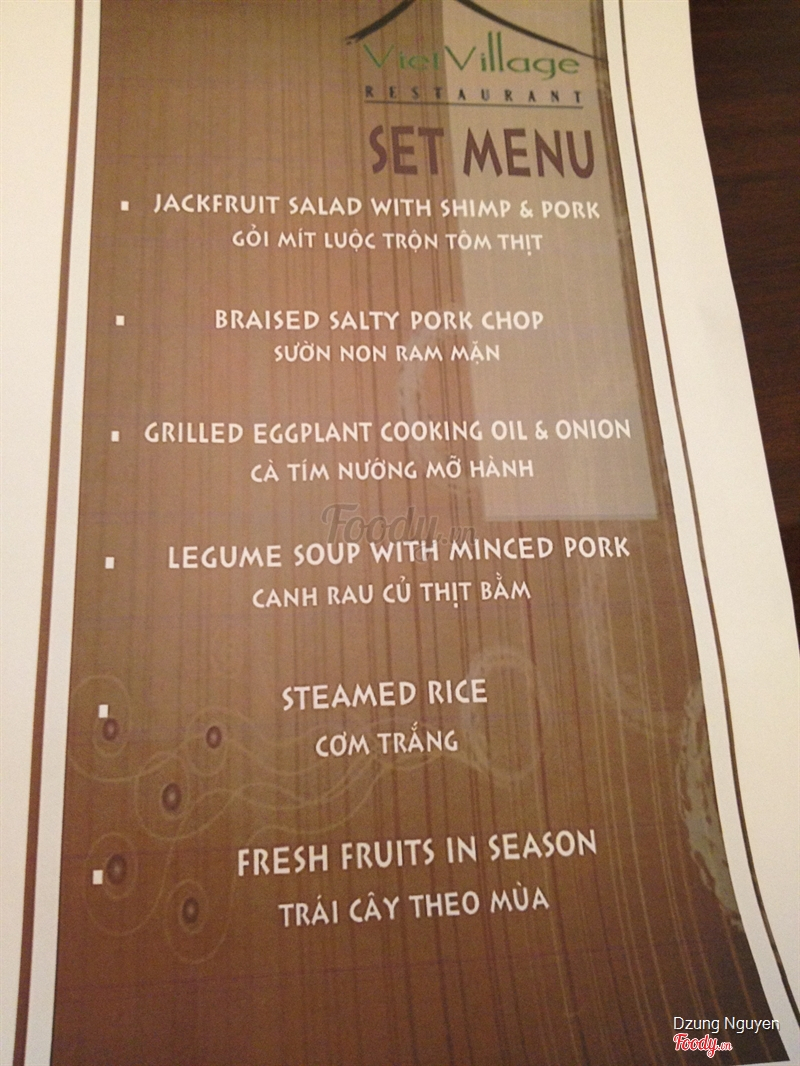 VietVillage
RESTAURANT
SET MENU
JACKFRUIT SALAD WITH SHIMP & PORK
GỎI MÍT LUỘC TRỘN TÔM THỊT
BRAISED SALTY PORK CHOP
SƯỜN NON RAM MẶN
GRILLED EGGPLANT COOKING OIL & ONION
CÀ TÍM NƯỚNG MỠ HÀNH
Foody.vn
LEGUME SOUP WITH MINCED PORK
CANH RAU CỦ THỊT BẰM
STEAMED RICE
CƠM TRẮNG
FRESH FRUITS IN SEASON
TRÁI CÂY THEO MÙA
Dzung Nguyen
Foody.vn